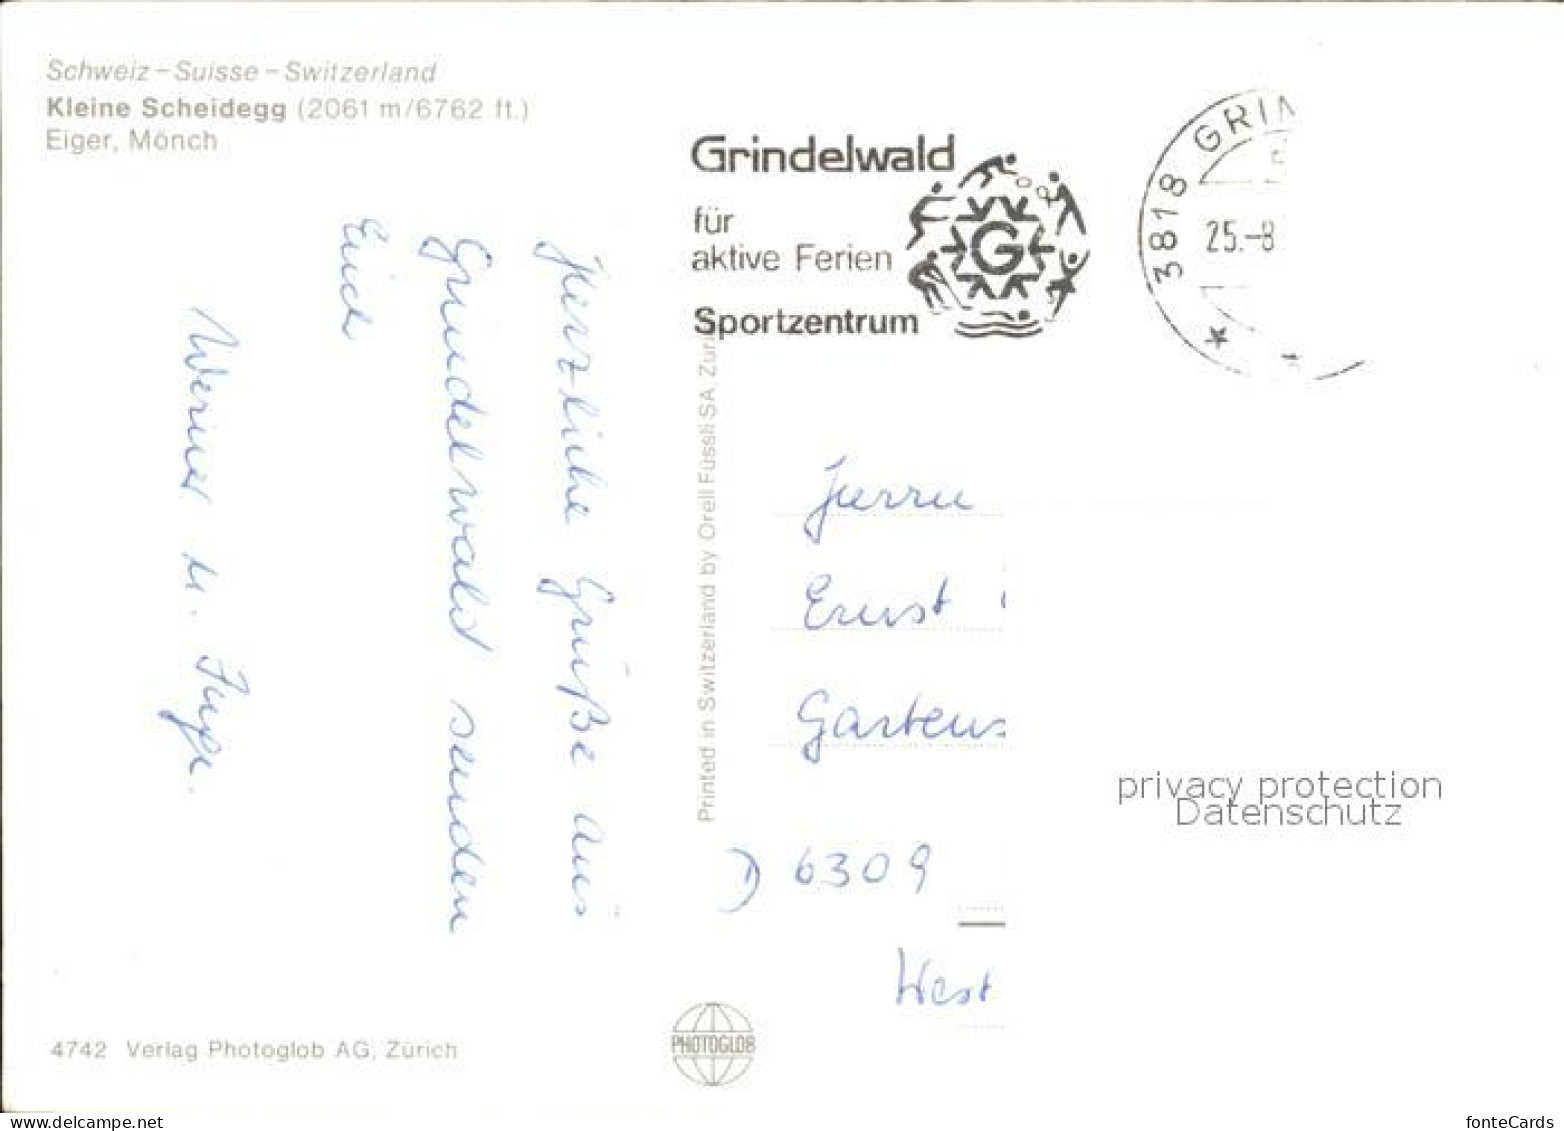 Schweiz – Suisse – Switzerland
Kleine Scheidegg (2061 m/6762 ft.)
Eiger, Mönch
Grindelwald
für
aktive Ferien
Sportzentrum
G
3818 GRIN
25.-8
Herzliche Grüße aus
Grindelwald senden
Euch
Werner u. Inge.
Printed in Switzerland by Orell Füssli SA, Zürich
Herrn
Ernst
Gartens
D 6309
West
privacy protection
Datenschutz
4742 Verlag Photoglob AG, Zürich
PHOTOGLOB
www.delcampe.net
fonteCards